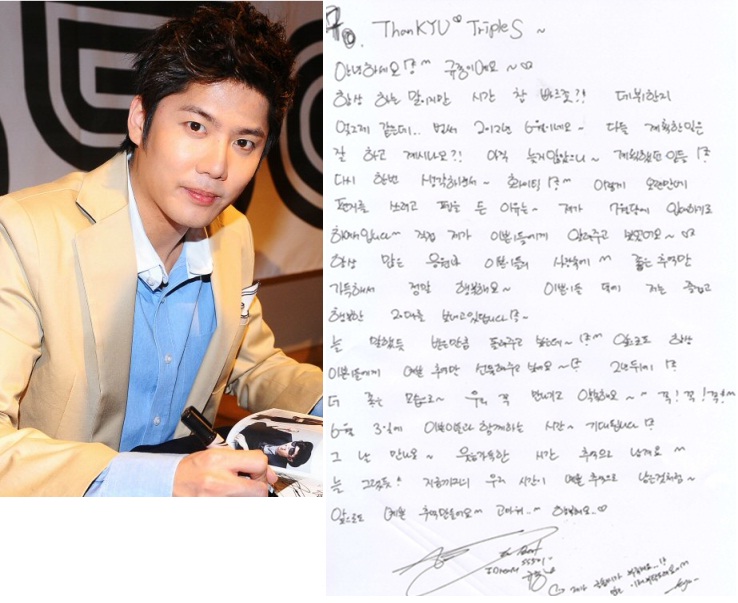 ThanKYU♡ TripleS ~
안녕하세요!^^ 규종이에요 ~♡
항상 하는 말이지만 시간 참 빠르죠?! 데뷔한지
엊그제 같은데... 벌써 2012년 6월이네요~ 다들 계획한일은
잘 하고 계시나요?! 아직 늦지않았으니~ 계획했던 일들
다시 한번 생각해봐서~ 화이팅!^^ 이렇게 오랜만에
편지를 쓰려고 펜을 든 이유는~ 제가 7월달에 입대하기로
하여입니다^^ 직접 제가 이쁜이들에게 알려주고 싶었어요~♡
항상 많은 응원과 이쁜이들의 사랑속에^^ 좋은 추억만
가득해서 정말 행복해요~ 이쁜이들 덕에 저는 즐겁고
행복한 20대를 보내고있답니다!~
늘 말했듯 받은만큼 돌려주고 싶은데~!^^ 앞으로도 항상
이쁜이들에게 예쁜 추억만 선물해주고 싶네요~! 2년뒤에!
더 좋은 모습으로~ 우리 꼭 만나자고 약속해요~^^ 꼭!꼭!꼭!^^
6월 3일에 이쁜이들과 함께하는 시간~ 기대됩니다!
그 날 만나요~ 웃음가득한 시간 추억으로 남겨요^^
늘 그렇듯^ 지금까지의 우리 시간이 예쁜 추억으로 남은것처럼~
앞으로도 예쁜 추억만들어요^^ 고마워..^^ 사랑해요..♡
SS501